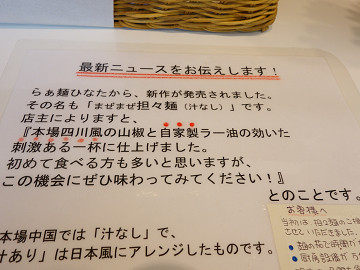 最新ニュースをお伝えします！
らぁ麺ひなたから、新作が発売されました。
その名も「まぜまぜ担々麺（汁なし）」です。
店主によりますと、
『本場四川風の山椒と自家製ラー油の効いた
刺激ある一杯に仕上げました。
初めて食べる方も多いと思いますが、
この機会にぜひ味わってみてください！』
とのことです。
本場中国では「汁なし」で、
汁あり」は日本風にアレンジしたものです。
お客様へ